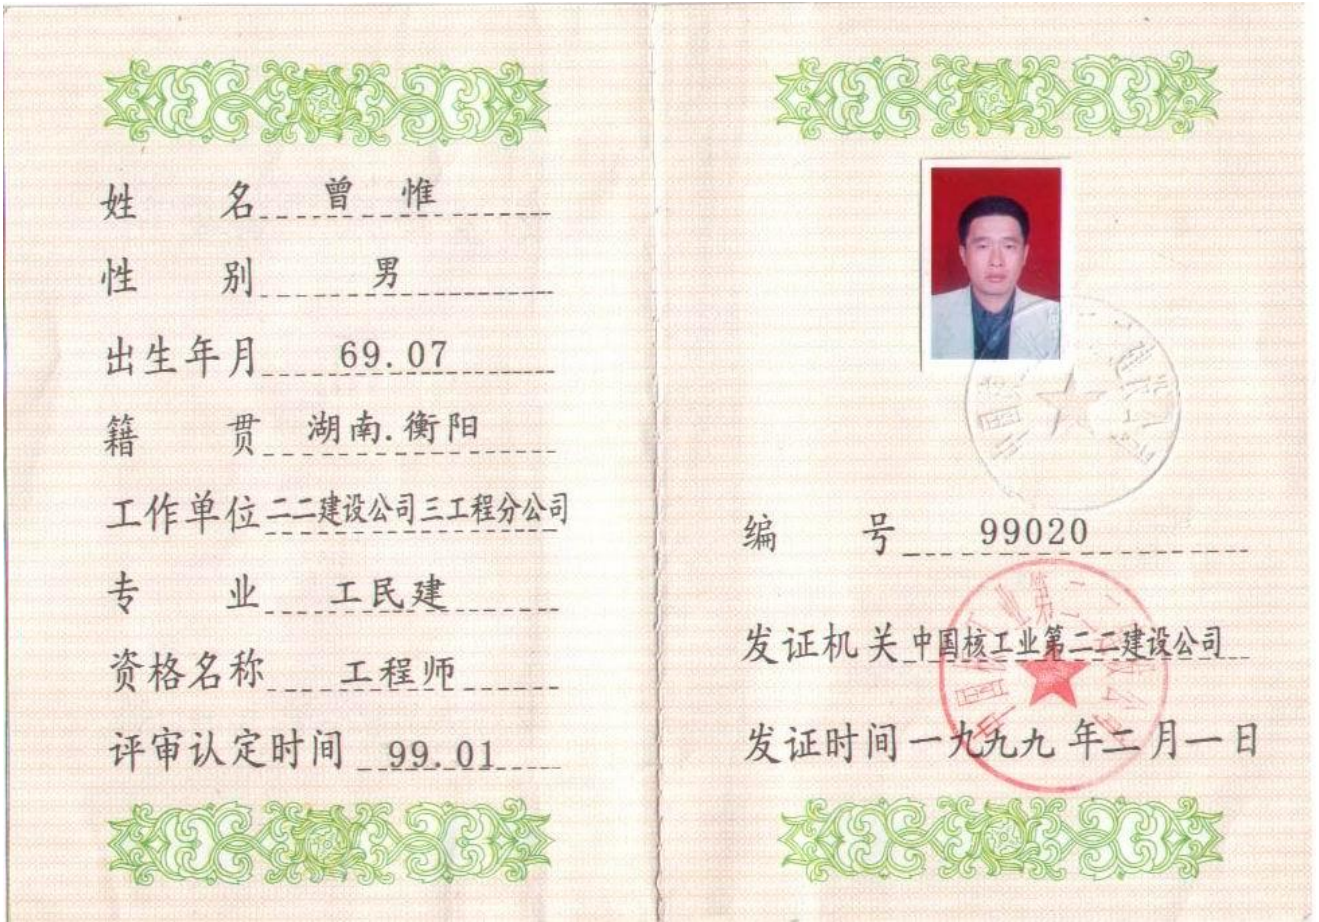 姓 名 曾 惟
性 别 男
出生年月 69.07
籍 贯 湖南.衡阳
工作单位 二二建设公司三工程分公司
专 业 工民建
资格名称 工程师
评审认定时间 99.01
编 号 99020
发证机关 中国核工业第二二建设公司
发证时间 一九九九 年 二 月 一 日
中国核工业第二二建设公司